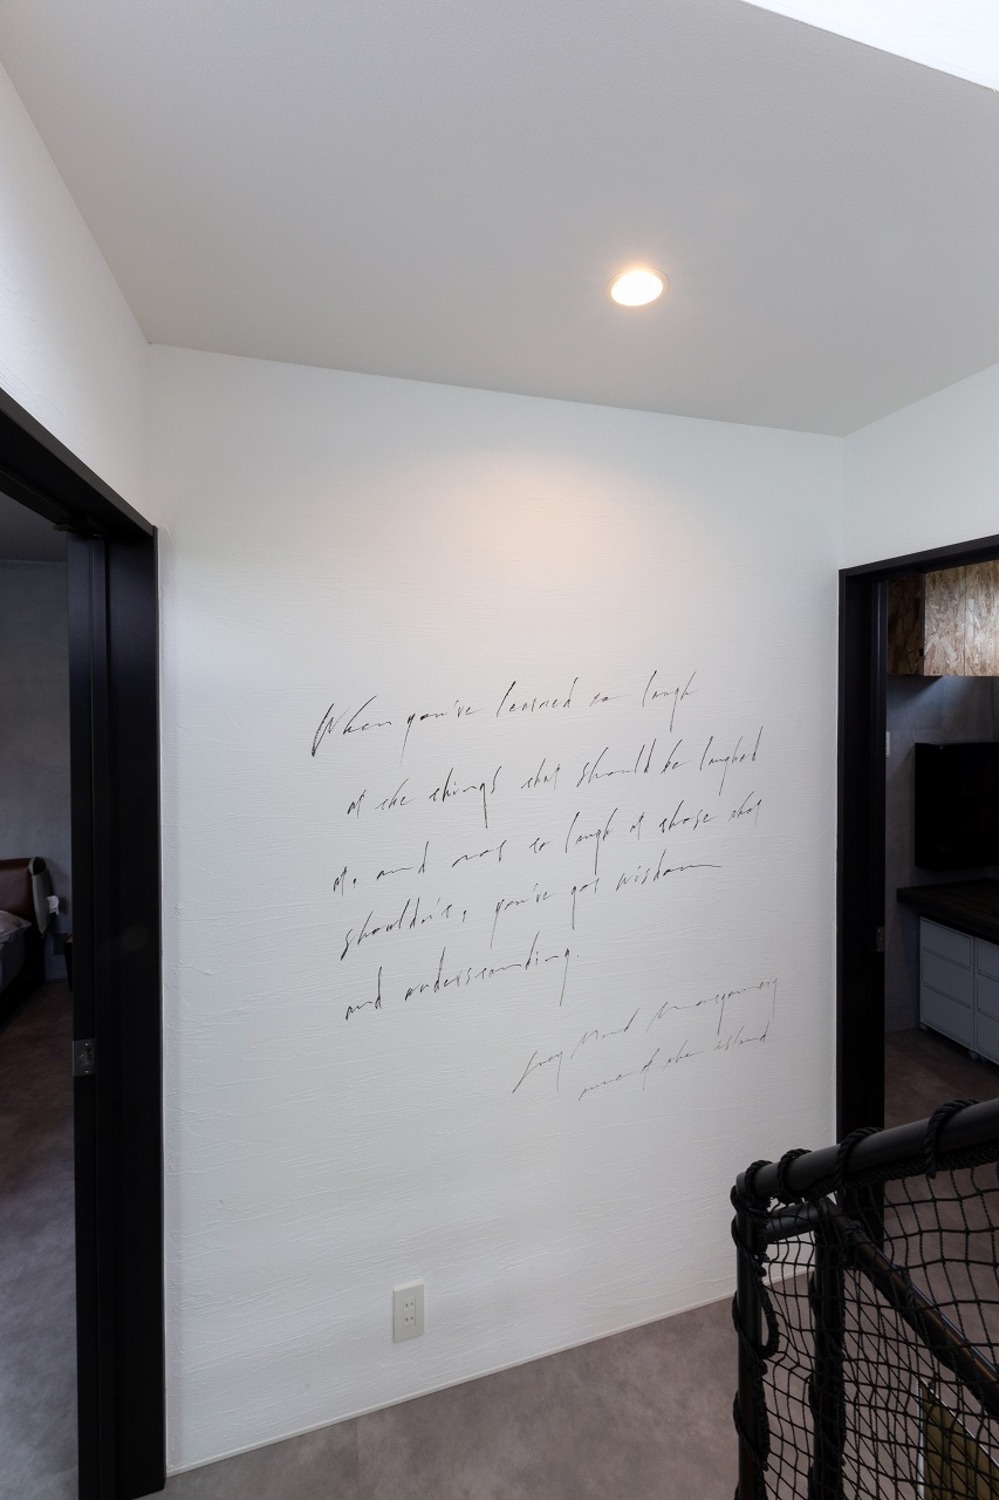 When you've learned to laugh
at the things that should be laughed
at, and not to laugh at those that
shouldn't, you've got wisdom
and understanding.
Lucy Maud Montgomery
anne of the island